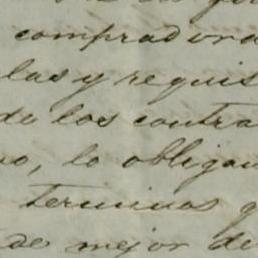 comprador
las y requis
de los contra
no, lo obligan
terminos q
de mejor de